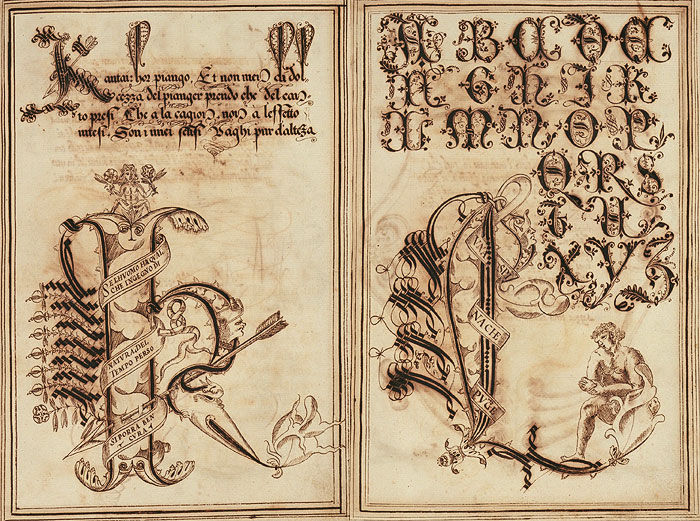 Kantai: hor piango, Et non men di dol
cezza del pianger prendo che del can
to presi. Che a la cagion, non a leffetto
intesi. Son i miei sensi Vaghi pur dalteza
HVOMO HA QVAL
CHE INGEGNO DI
NATVRA, DEL
TEMPO PERSO
SI PORRA
A B C D E
F G H I K
L M N O P
Q R S
T U
X Y Z
NACIE
PVRE